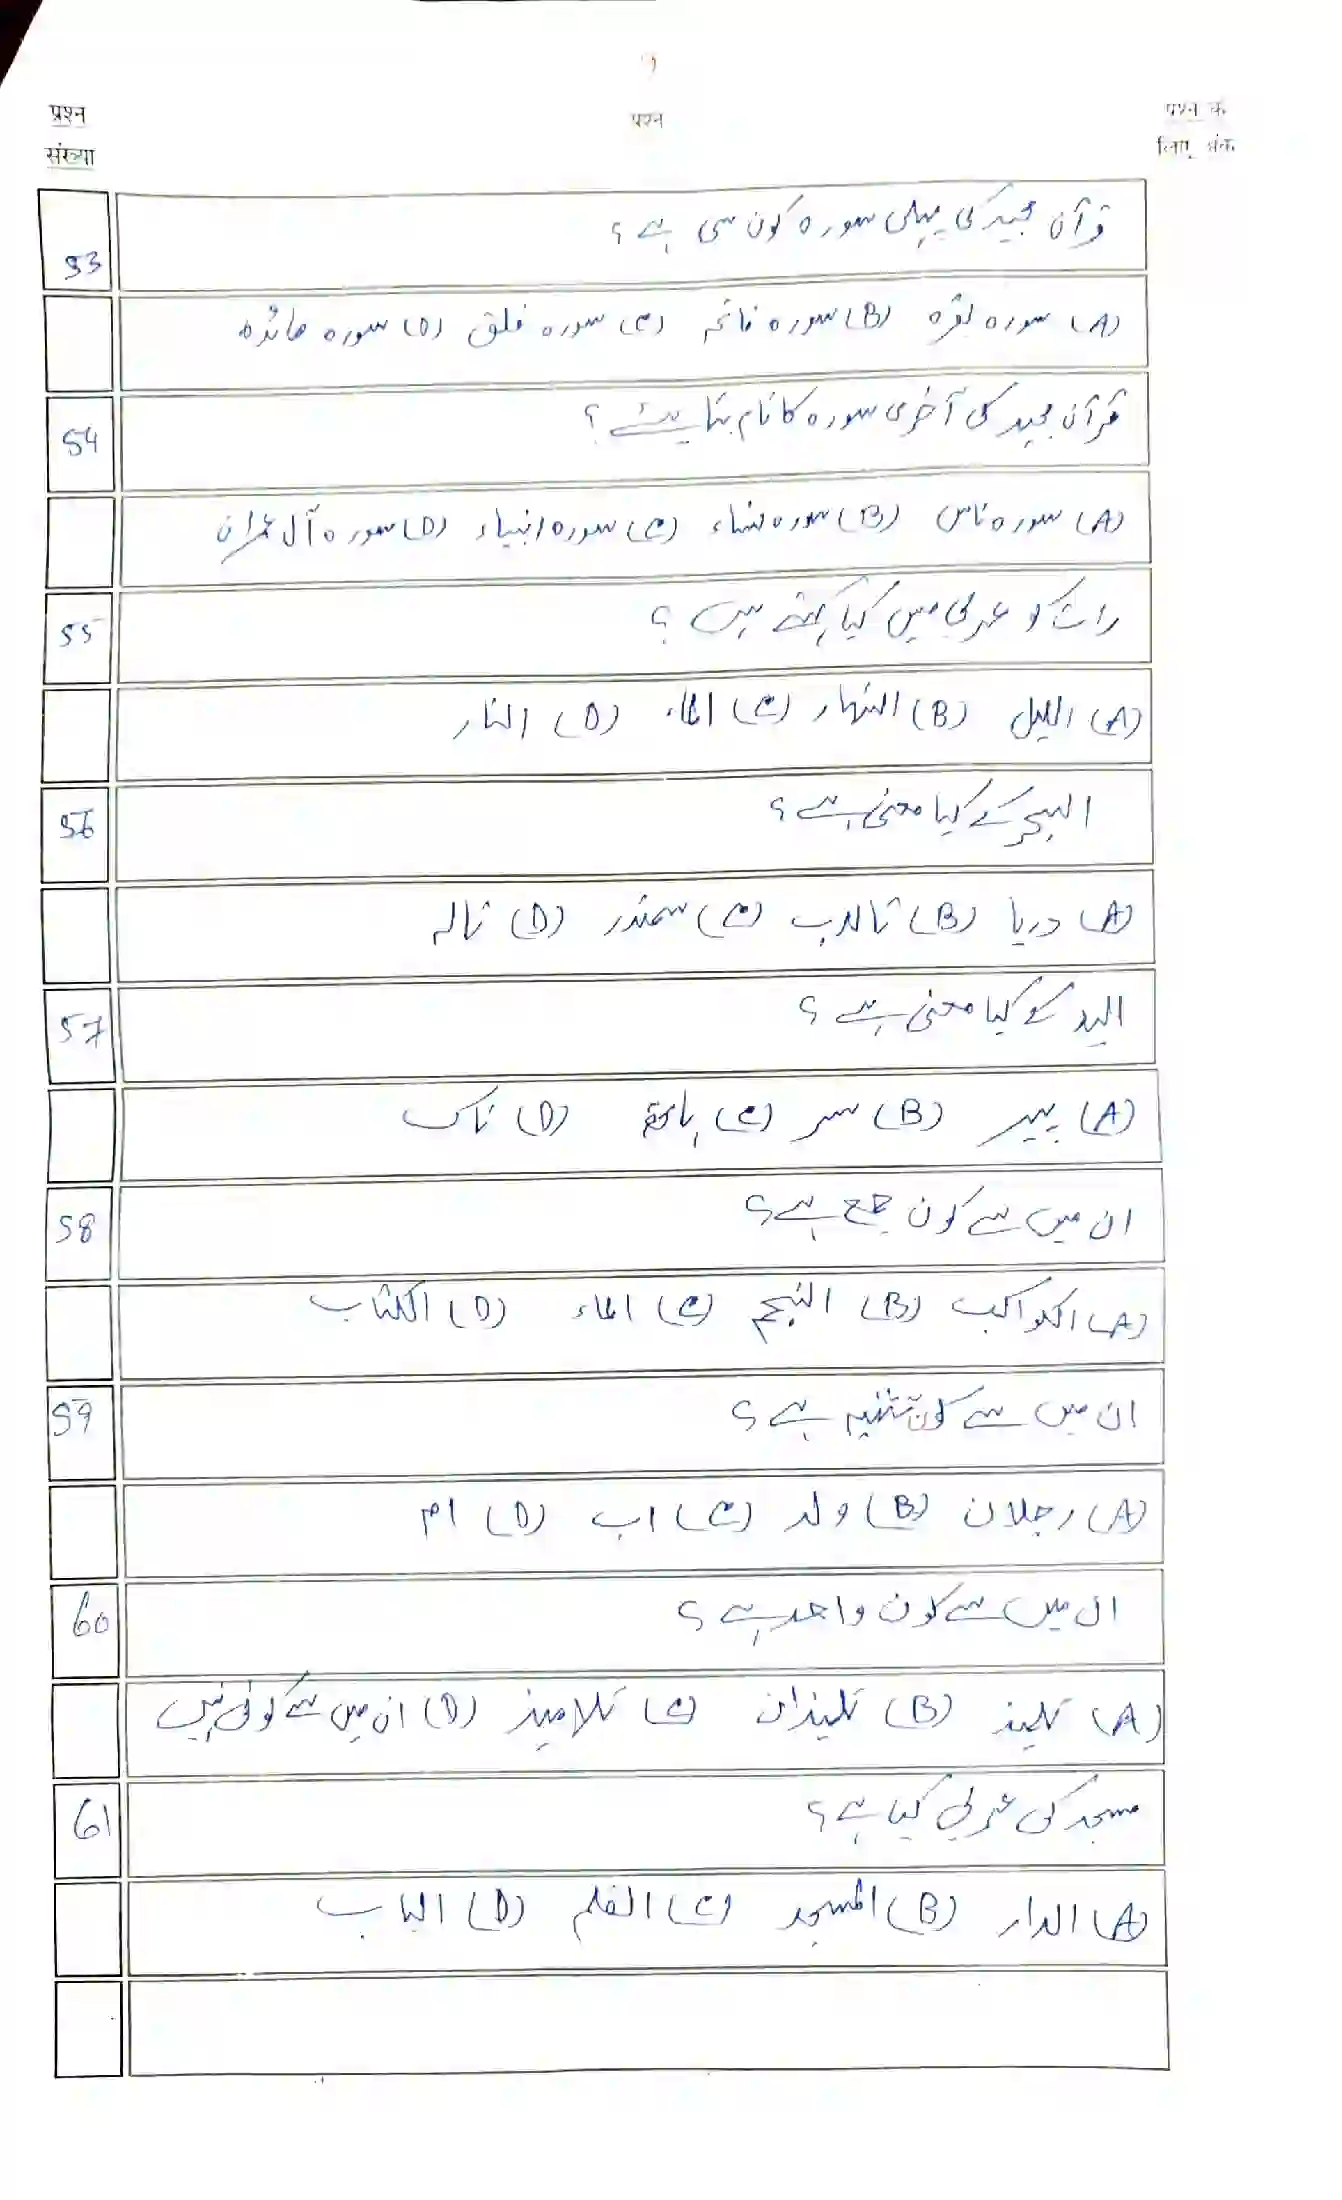 प्रश्न
संख्या
प्रश्न
प्रश्न के
लिए अंक
53
قرآن مجید کی پہلی سورہ کون سی ہے ؟
(A) سورہ بقرہ (B) سورہ فاتحہ (C) سورہ فلق (D) سورہ مائدہ
54
قرآن مجید کی آخری سورہ کا نام بتایئے ؟
(A) سورہ ناس (B) سورہ نساء (C) سورہ انبیاء (D) سورہ آل عمران
55
رات کو عربی میں کیا کہتے ہیں ؟
(A) اللیل (B) النہار (C) الماء (D) النار
56
البحر کے کیا معنی ہے ؟
(A) دریا (B) تالاب (C) سمندر (D) نالہ
57
الید کے کیا معنی ہے ؟
(A) پیر (B) سر (C) ہاتھ (D) ناک
58
ان میں سے کون جمع ہے ؟
(A) الکواکب (B) النجم (C) الماء (D) الکتاب
59
ان میں سے کون تثنیہ ہے ؟
(A) رجلان (B) ولد (C) اب (D) ام
60
ان میں سے کون واحد ہے ؟
(A) تلمیذ (B) تلمیذان (C) تلامیذ (D) ان میں سے کوئی نہیں
61
مسجد کی عربی کیا ہے ؟
(A) الدار (B) المسجد (C) القلم (D) الباب